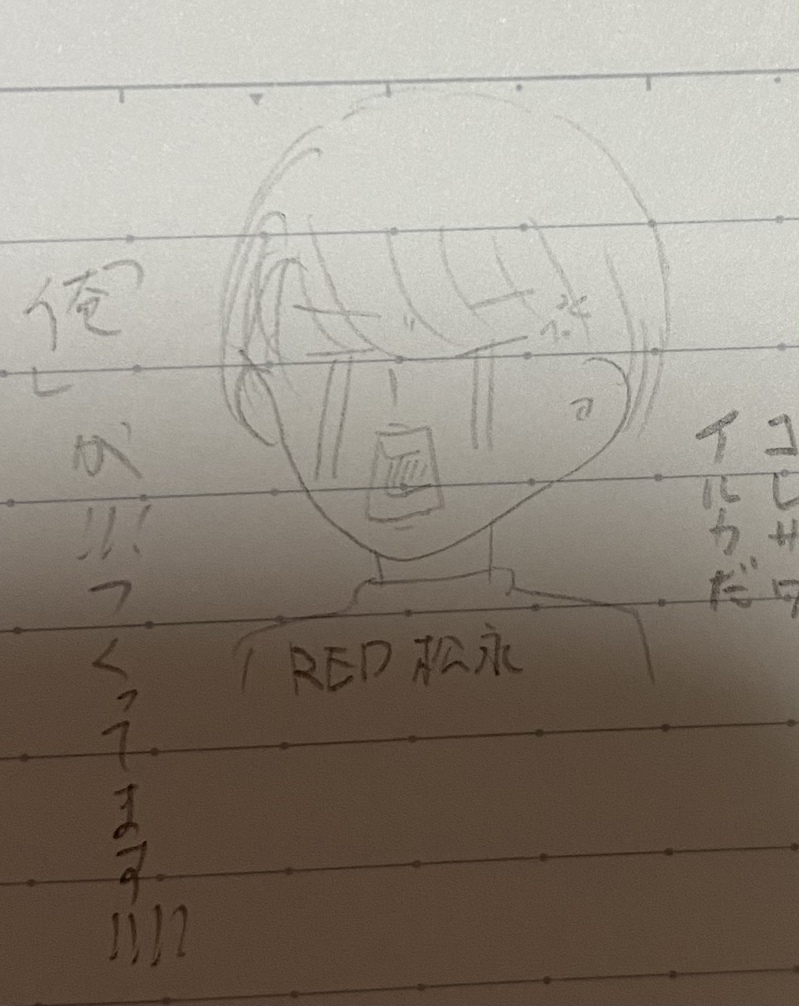 コレサワ
イルカだ
RED 松永
俺
が!!!
つくってます!!!!